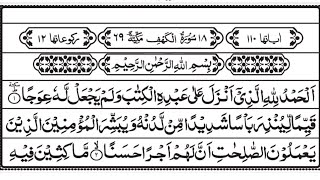 اٰیاتہا ۱۱۰ ۱۸ سُوْرَةُ الْكَهْفِ مَكِّیَّةٌ ۶۹ رکوعاتہا ۱۲
بِسْمِ اللّٰهِ الرَّحْمٰنِ الرَّحِیْمِ
اَلْحَمْدُ لِلّٰهِ الَّذِیْۤ اَنْزَلَ عَلٰى عَبْدِهِ الْكِتٰبَ وَلَمْ یَجْعَلْ لَّهٗ عِوَجًا ۱
قَیِّمًا لِّیُنْذِرَ بَاْسًا شَدِیْدًا مِّنْ لَّدُنْهُ وَیُبَشِّرَ الْمُؤْمِنِیْنَ الَّذِیْنَ
یَعْمَلُوْنَ الصّٰلِحٰتِ اَنَّ لَهُمْ اَجْرًا حَسَنًا ۲ مَّاكِثِیْنَ فِیْهِ